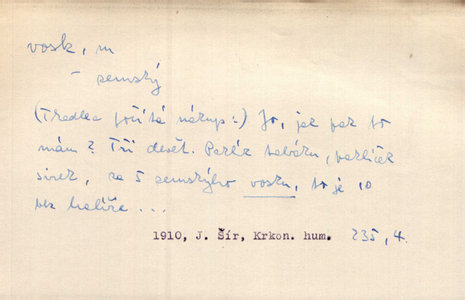 vosk, m
– zemský
(Tredlea počítá nákup:) Jo, jak pak to
mám? Tři deset. Paklz tabáku, paklíček
sirek, za 5 zemskýho vosku, to je 10
bez halíře ...
1910, J. Šír, Krkon. hum. 235, 4.